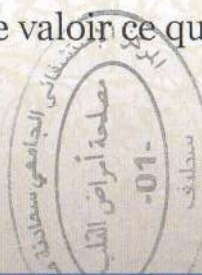 e valoir ce qu
الجامعي سعادنة
مصلحة أمراض القلب
-01-
سطيف